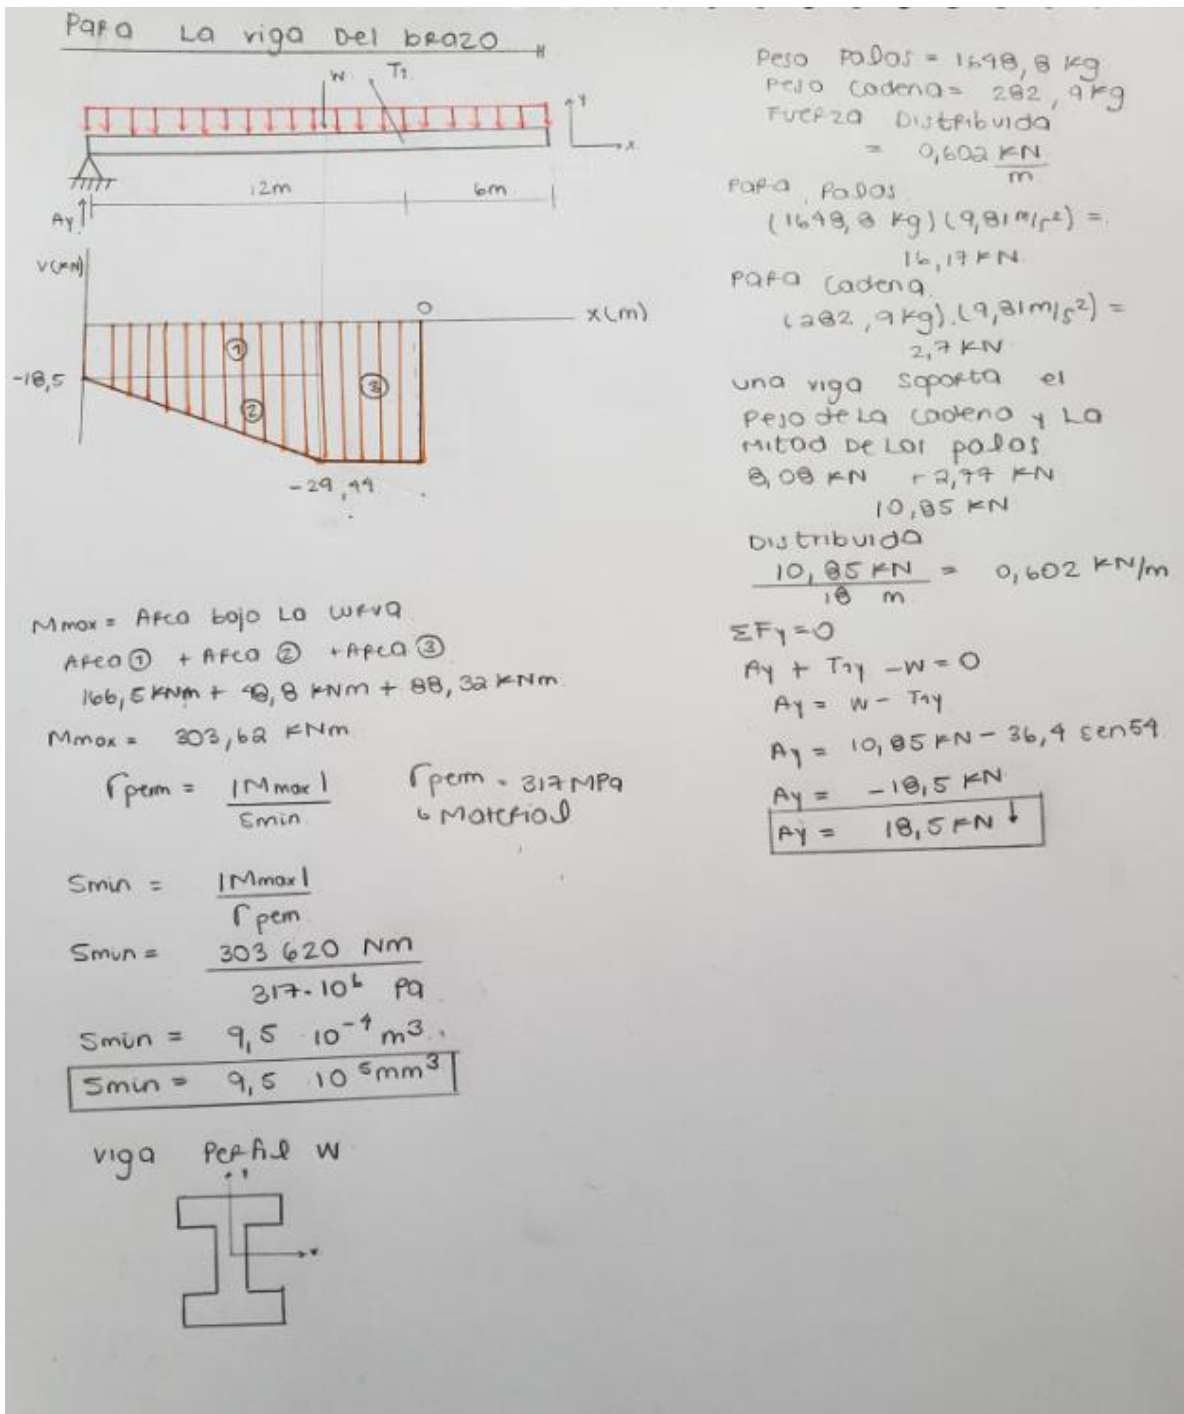 Para La viga Del brazo
W T1
Y
x
12m 6m
Ay
V(KN)
0
x(m)
-18,5
①
②
③
-29,44
Mmax = Area bajo La curva
Area ① + Area ② + Area ③
166,5 KNm + 48,8 KNm + 88,32 KNm
Mmax = 303,62 KNm
σperm = |Mmax| / Smin
σperm = 317 MPa
↳ Material
Smin = |Mmax| / σpem
Smin = 303 620 Nm / 317·10⁶ Pa
Smin = 9,5 · 10⁻⁴ m³
Smin = 9,5 · 10⁵ mm³
viga Perfil W
Peso Palos = 1648,8 kg
Peso Cadena = 282,9kg
Fuerza Distribuida
= 0,602 KN/m
Para Palos
(1648,8 kg) (9,81 m/s²) =
16,17 KN
Para Cadena
(282,9kg).(9,81m/s²) =
2,7 KN
una viga soporta el
Peso de La cadena y La
Mitad De Los palos
8,08 KN + 2,77 KN
10,85 KN
Distribuida
10,85 KN / 18 m = 0,602 KN/m
ΣFy=0
Ay + T1y - W = 0
Ay = W - T1y
Ay = 10,85 KN - 36,4 sen54
Ay = -18,5 KN
Ay = 18,5 KN ↓